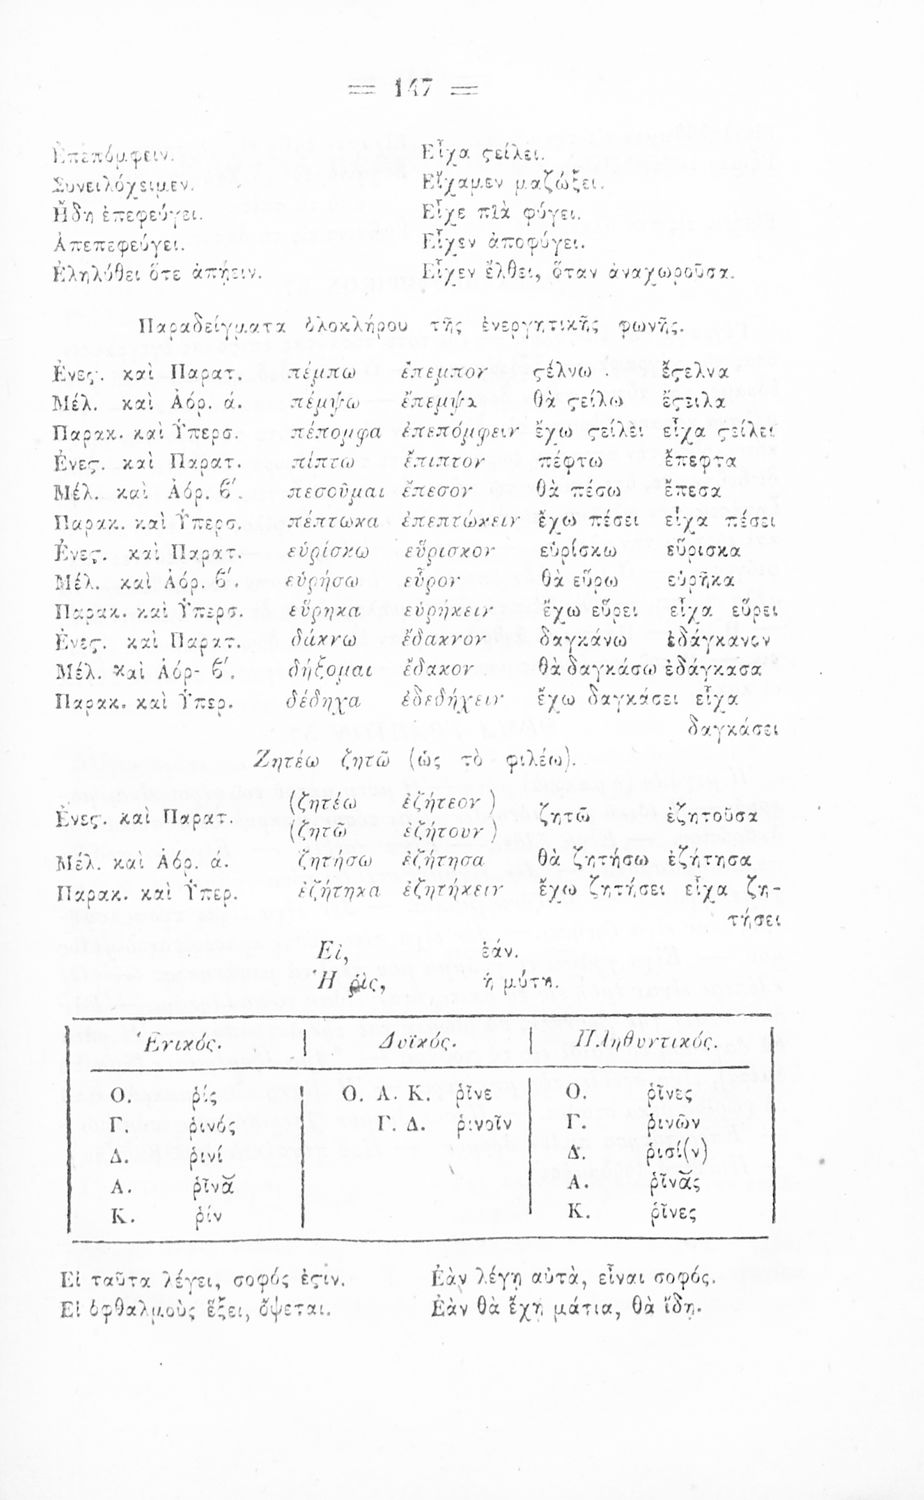 = 147 =
Ἐπεπόμφειν. Εἶχα ϛείλει.
Συνειλόχειμεν. Εἴχαμεν μαζώξει.
Ἤδη ἐπεφεύγει. Εἶχε πιὰ φύγει.
Ἀπεπεφεύγει. Εἶχεν ἀποφύγει.
Ἐληλύθει ὅτε ἀπῄειν. Εἶχεν ἔλθει, ὅταν ἀναχωροῦσα.
Παραδείγματα ὁλοκλήρου τῆς ἐνεργητικῆς φωνῆς.
Ἐνεϛ. καὶ Παρατ. πέμπω ἔπεμπον ϛέλνω ἔϛελνα
Μέλ. καὶ Ἀόρ. ά. πέμψω ἔπεμψα θὰ ϛείλω ἔϛειλα
Παρακ. καὶ Ὑπερσ. πέπομφα ἐπεπόμφειν ἔχω ϛείλει εἶχα ϛείλει
Ἐνεϛ. καὶ Παρατ. πίπτω ἔπιπτον πέφτω ἔπεφτα
Μέλ. καὶ Ἀόρ. ϐ΄. πεσοῦμαι ἔπεσον θὰ πέσω ἔπεσα
Παρακ. καὶ Ὑπερσ. πέπτωκα ἐπεπτώκειν ἔχω πέσει εἶχα πέσει
Ἐνεϛ. καὶ Παρατ. εὑρίσκω εὕρισκον εὑρίσκω εὕρισκα
Μέλ. καὶ Ἀόρ. ϐ΄. εὑρήσω εὗρον θὰ εὕρω εὑρῆκα
Παρακ. καὶ Ὑπερσ. εὕρηκα εὑρήκειν ἔχω εὕρει εἶχα εὕρει
Ἐνεϛ. καὶ Παρατ. δάκνω ἔδακνον δαγκάνω ἐδάγκανον
Μέλ. καὶ Ἀόρ- ϐ΄. δήξομαι ἔδακον θὰ δαγκάσω ἐδάγκασα
Παρακ. καὶ Ὑπερ. δέδηχα ἐδεδήχειν ἔχω δαγκάσει εἶχα
δαγκάσει
Ζητέω ζητῶ (ὡς τὸ φιλέω).
(ζητέω ἐζήτεον)
Ἐνεϛ. καὶ Παρατ. ζητῶ ἐζητοῦσα
(ζητῶ ἐζήτουν)
Μέλ. καὶ Ἀόρ. ά. ζητήσω ἐζήτησα θὰ ζητήσω ἐζήτησα
Παρακ. καὶ Ὑπερ. ἐζήτηκα ἐζητήκειν ἔχω ζητήσει εἶχα ζη-
τήσει
Εἰ, ἐάν.
Ἡ ῥὶς, ἡ μύτη.
Ἑνικός. Δυϊκός. Πληθυντικός.
Ο. ῥίς Ο. Α. Κ. ῥῖνε Ο. ῥῖνες
Γ. ῥινός Γ. Δ. ῥινοῖν Γ. ῥινῶν
Δ. ῥινί Δ. ῥισί(ν)
Α. ῥῖνᾰ Α. ῥῖνᾰς
Κ. ῥίν Κ. ῥῖνες
Εἰ ταῦτα λέγει, σοφός ἐϛιν. Ἐὰν λέγῃ αὐτὰ, εἶναι σοφός.
Εἰ ὀφθαλμοὺς ἕξει, ὄψεται. Ἐὰν θὰ ἔχῃ μάτια, θὰ ἴδῃ.